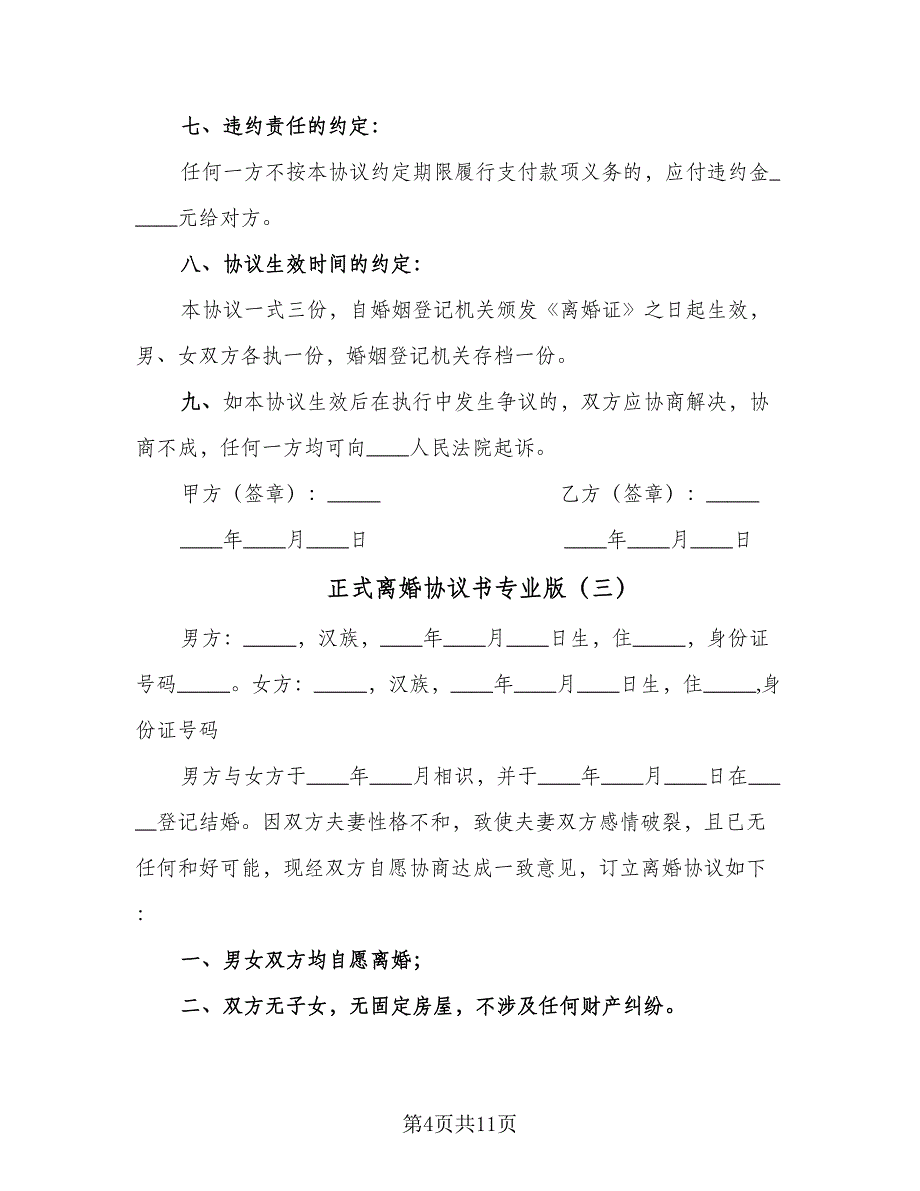 七、违约责任的约定：
任何一方不按本协议约定期限履行支付款项义务的，应付违约金_
____元给对方。
八、协议生效时间的约定：
本协议一式三份，自婚姻登记机关颁发《离婚证》之日起生效，
男、女双方各执一份，婚姻登记机关存档一份。
九、如本协议生效后在执行中发生争议的，双方应协商解决，协
商不成，任何一方均可向____人民法院起诉。
甲方（签章）：_____ 乙方（签章）：_____
____年____月____日 ____年____月____日
正式离婚协议书专业版（三）
男方：_____，汉族，____年____月____日生，住_____，身份证
号码_____。女方：_____，汉族，____年____月____日生，住_____,身
份证号码
男方与女方于____年____月相识，并于____年____月____日在___
__登记结婚。因双方夫妻性格不和，致使夫妻双方感情破裂，且已无
任何和好可能，现经双方自愿协商达成一致意见，订立离婚协议如下
：
一、男女双方均自愿离婚；
二、双方无子女，无固定房屋，不涉及任何财产纠纷。
第4页共11页